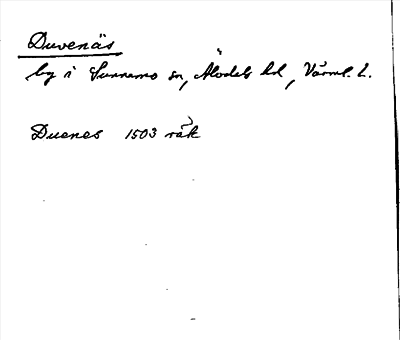 Duvenäs
by i Sunnemo sn, Älvdals hd, Värml. l.
Duenes 1503 räk